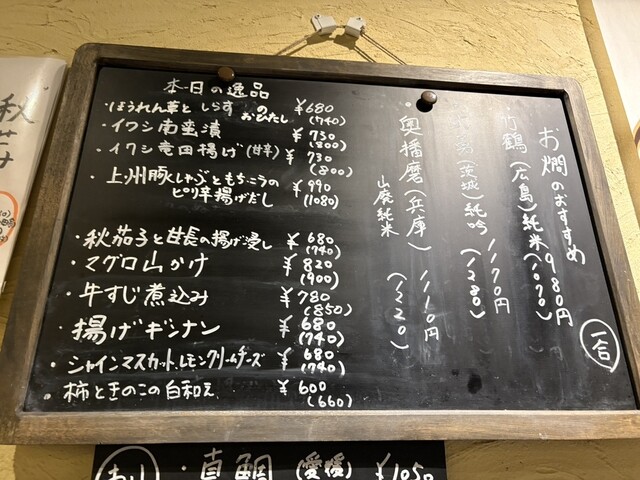 本日の逸品
・ほうれん草としらすのおひたし ¥680 (740)
・イワシ南蛮漬 ¥730 (800)
・イワシ竜田揚げ(甘辛) ¥730 (800)
・上州豚しゃぶともちこうの
ピリ辛揚げだし ¥990 (1080)
・秋茄子と甘長の揚げ浸し ¥680 (740)
・マグロ山かけ ¥820 (900)
・牛すじ煮込み ¥780 (850)
・揚げギンナン ¥680 (740)
・シャインマスカット、レモンクリームチーズ ¥680 (740)
・柿ときのこの白和え ¥600 (660)
お燗のおすすめ
一合
竹鶴(広島)純米 980円 (1070)
(茨城)純吟 1170円 (1280)
・奥播磨(兵庫) 1110円 (1220)
山廃純米
秋茄み
・真鯛 (愛媛) ¥1050